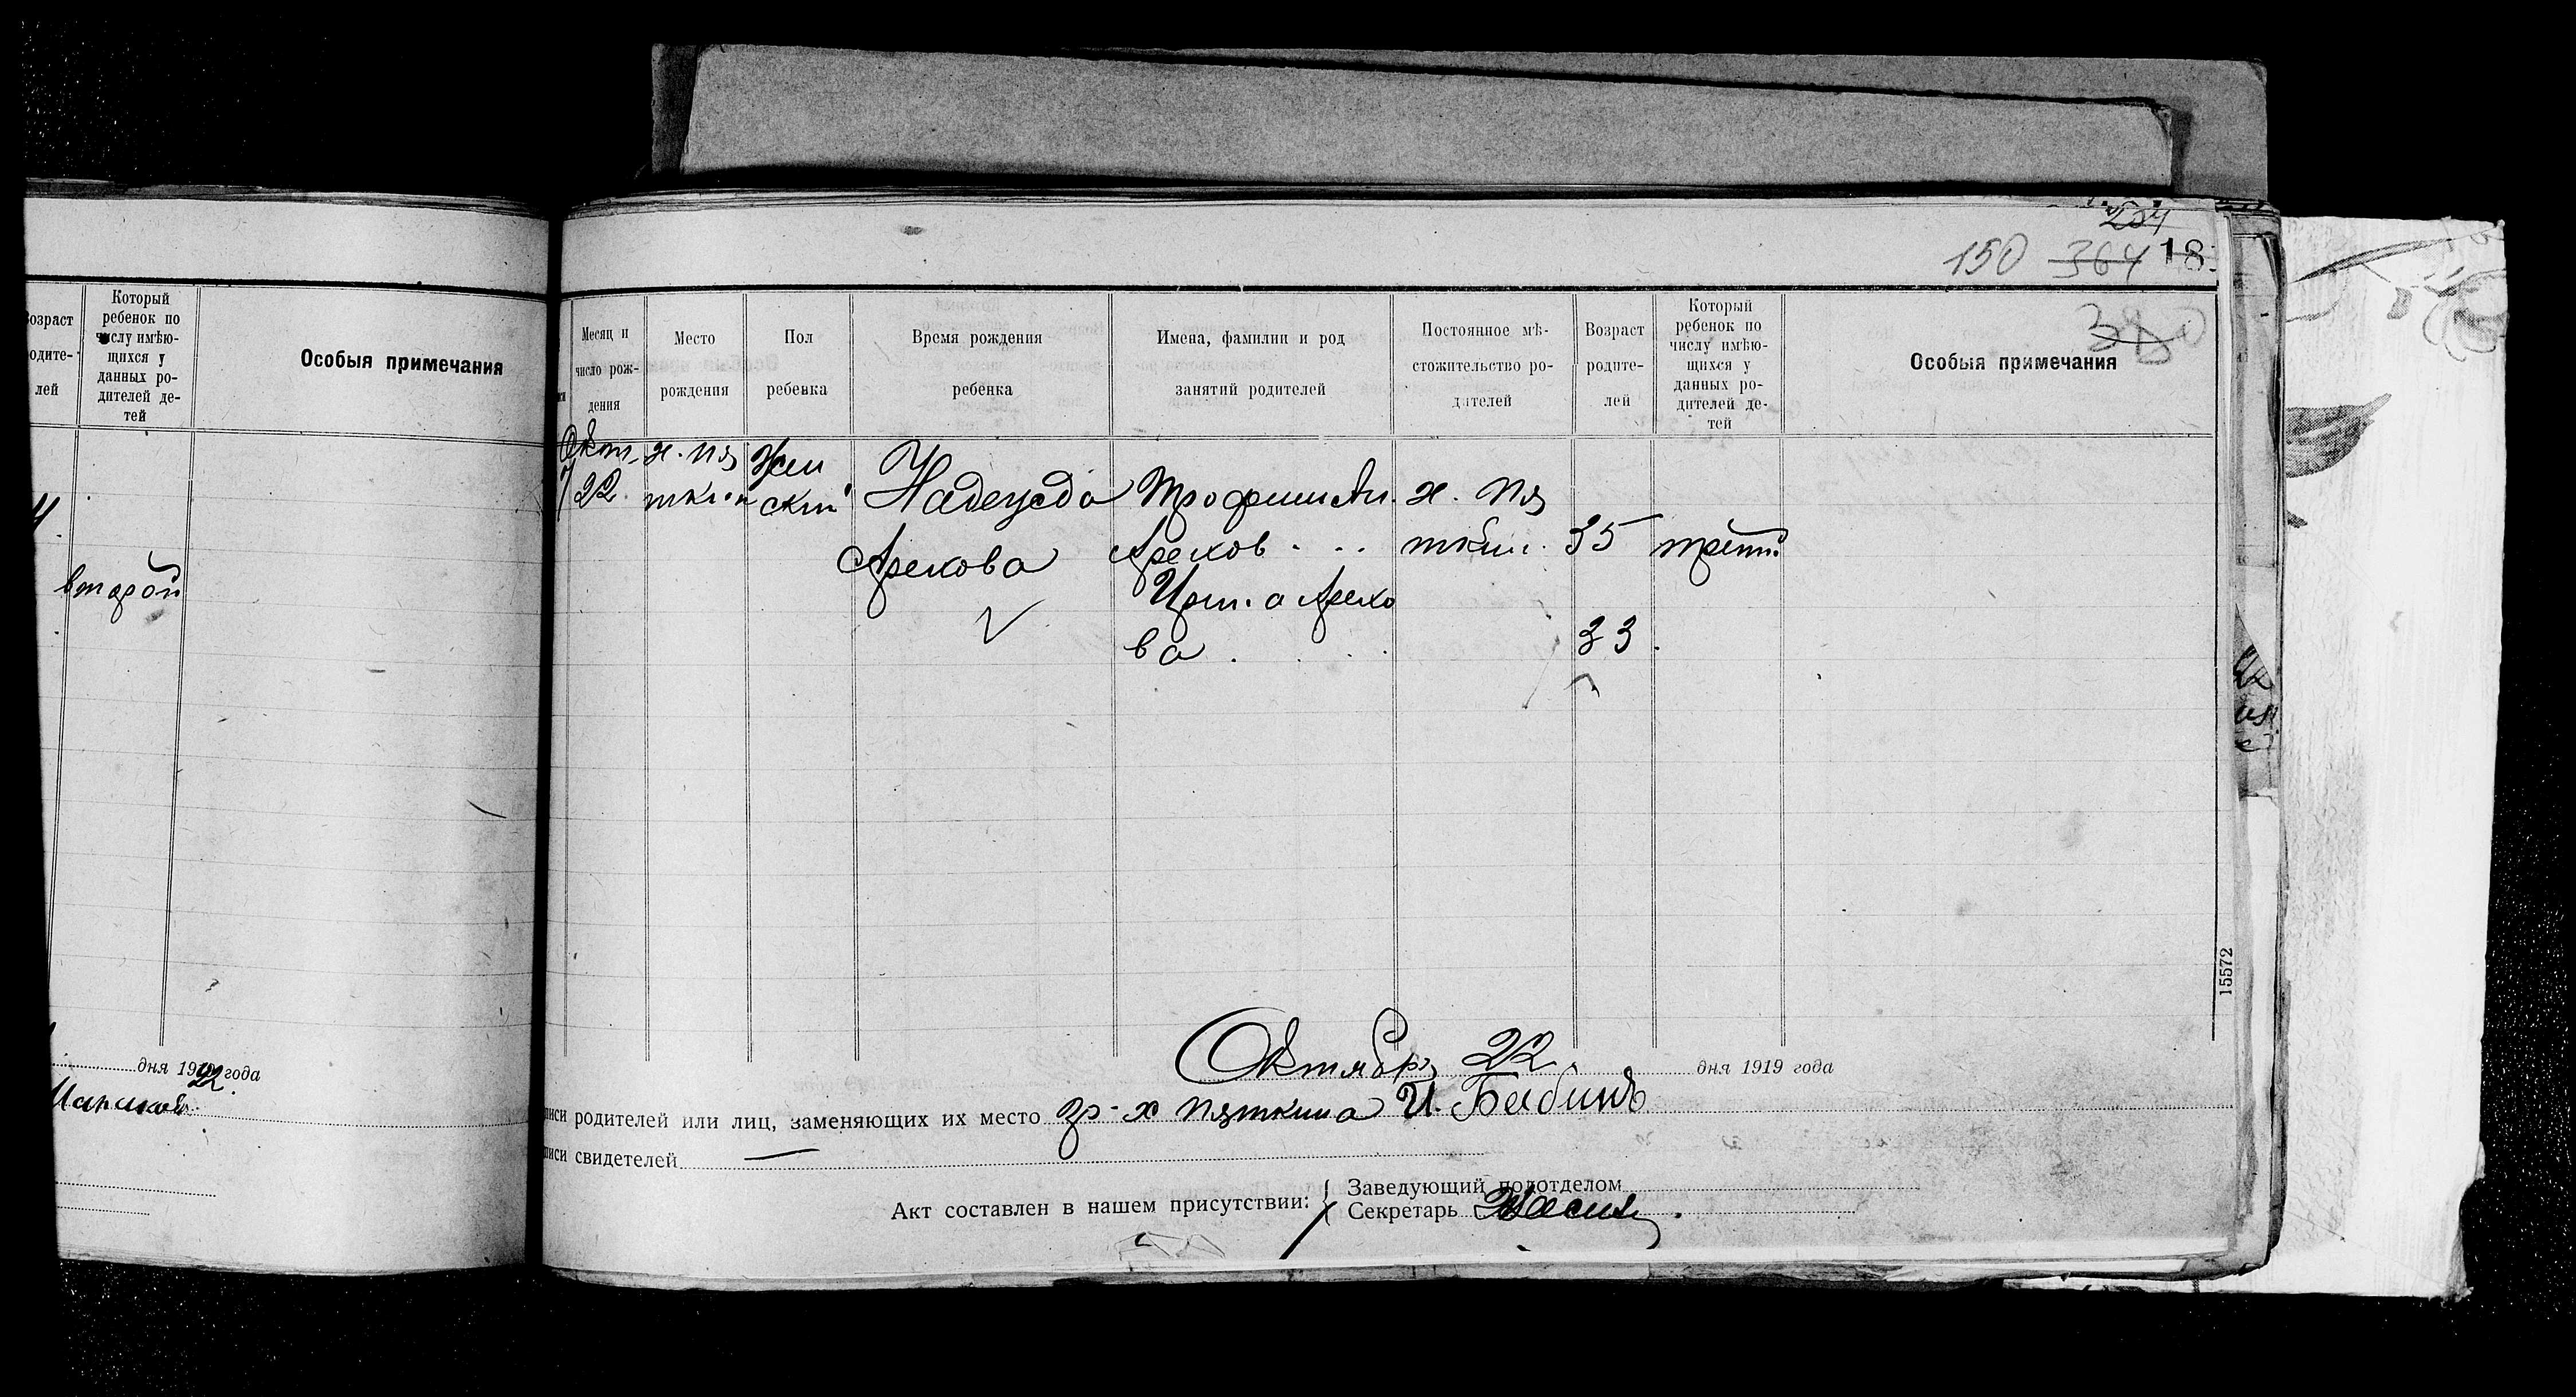 озраст
одите-
лей
Который
ребенок по
числу имѣю-
щихся у
данных ро-
дителей де-
тей
Особыя примечания
второй
дня 1919 года
22
254
150 364 18
380
Месяц и
число рож-
дения
Место
рождения
Пол
ребенка
Время рождения
ребенка
Имена, фамилии и род
занятий родителей
Постоянное мѣ-
стожительство ро-
дителей
Возраст
родите-
лей
Который
ребенок по
числу имѣю-
щихся у
данных ро-
дителей де-
тей
Особыя примечания
Окт. х. Пя Жен
22 ткин ский Надежда Трофим Ан. х. Пя
Арехова Арехов ткин. 35 трети
а Арехо
ва 33
15572
Октября 22 дня 1919 года
иси родителей или лиц, заменяющих их место гр. х Пяткина И. Бабинъ
иси свидетелей —
Акт составлен в нашем присутствии: Заведующий подотделом
Секретарь